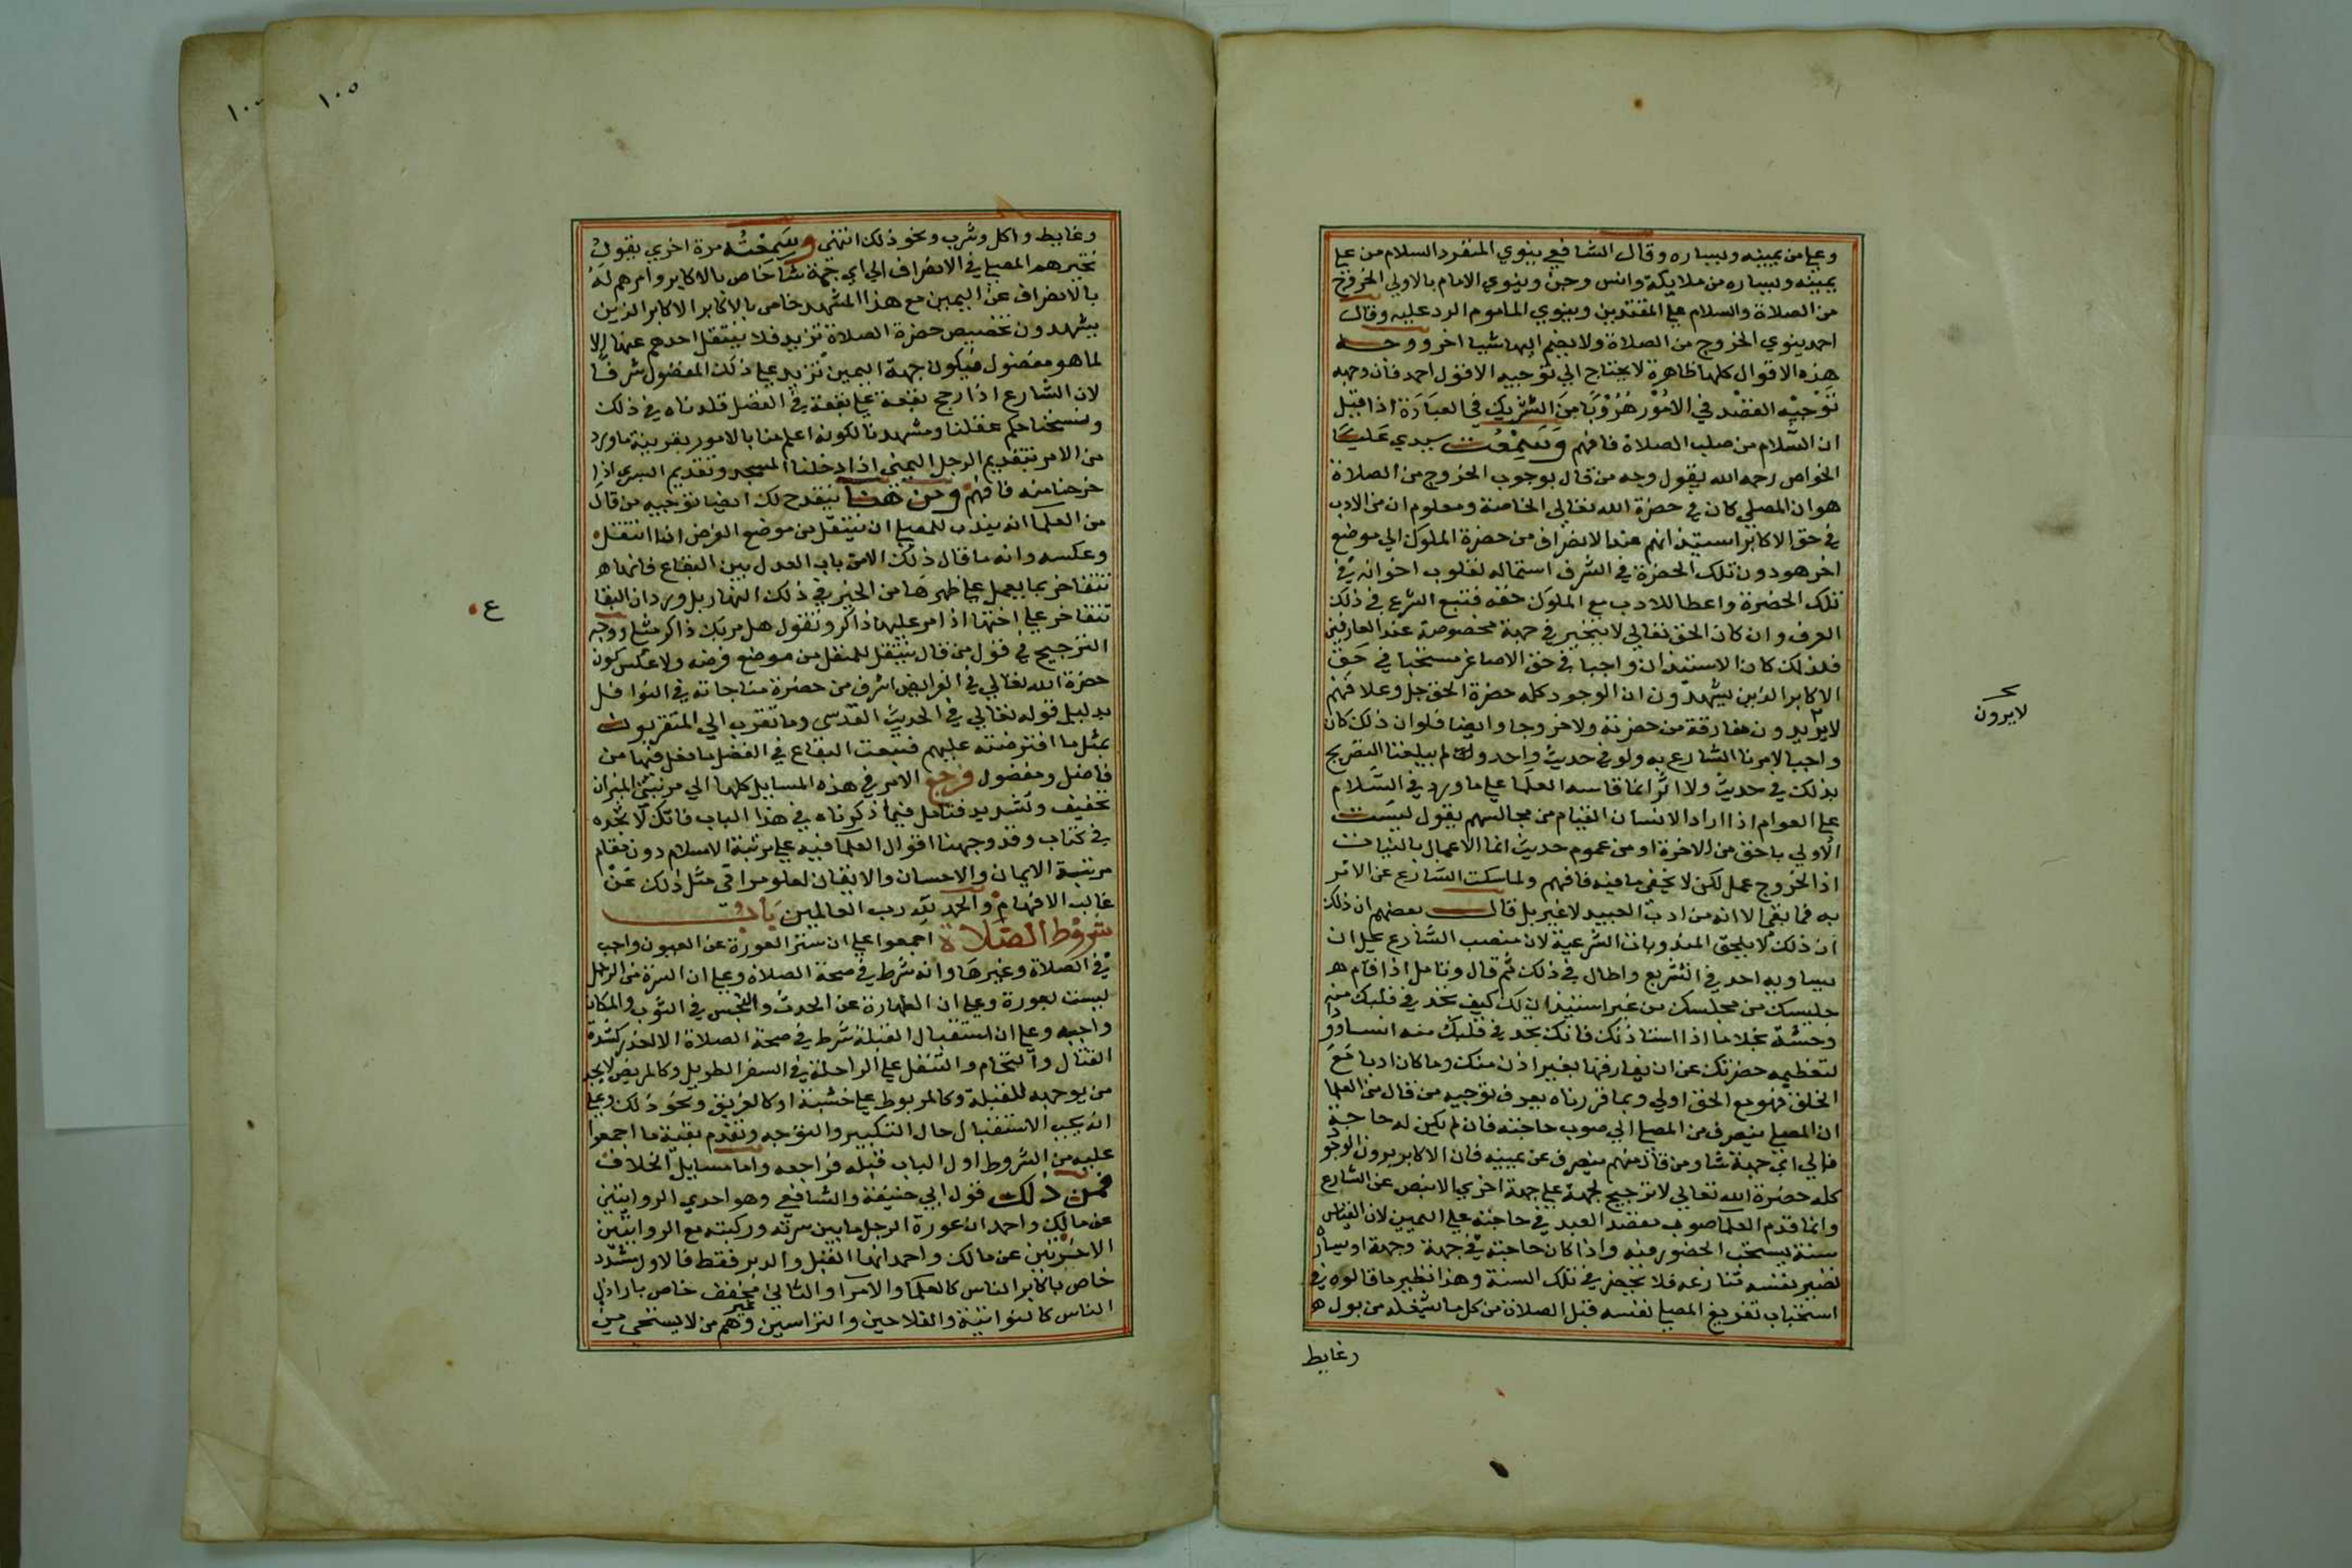 وعلي من يمينه ويساره وقال الشافعي ينوي المنفرد السلام من علي
يمينه ويساره من ملايكة وانس وجن وينوي الامام بالاولي الخروج
من الصلاة والسلام علي المقتدين وينوي الماموم الرد عليه وقال
احمد ينوي الخروج من الصلاة ولا يضم اليها شيا اخر ووجه
هذه الاقوال كلها ظاهرة لا يحتاج الي توجيه الا قول احمد فان وجهه
توجيه القصد في الامور هروبا من التشريك في العبادة اذا قيل
ان السلام من صلب الصلاة فافهم وسمعت سيدي عليا
الخواص رحمه الله يقول وجه من قال بوجوب الخروج من الصلاة
هو ان المصلي كان في حضرة الله تعالي الخاصة ومعلوم ان من الادب
في حق الاكابر استيذانهم عند الانصراف من حضرة الملوك الي موضع
اخر هو دون تلك الحضرة في الشرف استمالة لقلوب اخوانه في
تلك الحضرة واعطا للادب مع الملوك حقه فتبع الشرع في ذلك
العرف وان كان الحق تعالي لا يتحيز في جهة مخصوصة عند العارفين
فلذلك كان الاستيذان واجبا في حق الاصاغر مستحبا في حق
الاكابر الذين يشهدون ان الوجود كله حضرة الحق جل وعلا فهم
لا يريدون مفارقة من حضرته ولا خروجا وايضا فلو ان ذلك كان
واجبا لامرنا الشارع به ولو في حديث واحد ولم يبلغنا التصريح
بذلك في حديث ولا اثر انما قاسه العلما علي ما ورد في السلام
علي العوام اذا اراد الانسان القيام من مجالسهم يقول ليست
الاولي باحق من الاخرة او من عموم حديث انما الاعمال بالنيات
اذ الخروج عمل لكن لا يخفي ما فيه فافهم ولما سكت الشارع عن الامر
به فما بقي الا انه من ادب العبيد لا غير بل قال بعضهم ان ذلك
ان ذلك لا يلحق المندوبات الشرعية لان منصب الشارع يجل ان
يساويه احد في التشريع واطال في ذلك ثم قال وتامل اذا قام
جليسك من مجلسك من غير استيذان لك كيف تجد في قلبك منه
وحشة بخلاف ما اذا استاذنك فانك تجد في قلبك منه انسا وودا
لتعظيمه حضرتك عن ان يفارقها بغير اذن منك وما كان ادبا مع
الخلق فهو مع الحق اولي وبما قررناه يعرف توجيه من قال من العلما
ان المصلي ينصرف من المصلي الي صوب حاجته فان لم يكن له حاجة
فالي اي جهة شا ومن قال منهم ينصرف عن يمينه فان الاكابر يرون الوجود
كله حضرة الله تعالي لا ترجيح لجهة علي جهة اخري الا بنص عن الشارع
وانما قدم العلما صوب مقصد العبد في حاجته علي اليمين لان القياس
سنة يستحب الحضور فيه واذا كان حاجته في جهة وجهه او يساره
تصير نفسه تنازعه فلا تحضر في تلك السنة وهذا نظير ما قالوه في
استحباب تفريغ المصلي نفسه قبل الصلاة من كل ما يشغله من بول
وغايط
لا يرون
١٠٥
وغايط واكل وشرب ونحو ذلك انتهي وسمعته مرة اخري يقول
تخيرهم المصلي في الانصراف الي اي جهة شا خاص بالاكابر وامرهم له
بالانصراف عن اليمين مع هذا المشهد خاص بالاكابر الاكابر الذين
يشهدون تخصيص حضرة الصلاة تزيد فلا ينتقل احدهم عنها الا
لما هو مفضول فيكون جهة اليمين تزيد علي ذلك المفضول شرفا
لان الشارع اذا رجح بقعة علي بقعة في الفضل قلدناه في ذلك
ونسخنا حكم عقلنا ومشهدنا لكونه اعلم منا بالامور بقرينة ما ورد
من الامر بتقديم الرجل اليمني اذا دخلنا المسجد وتقديم اليسري اذا
خرجنا منه فافهم ومن هنا ينقدح لك ايضا توجيه من قال
من العلما انه يندب للمصلي ان ينتقل من موضع الفرض اذا انتفل
وعكسه وانه ما قال ذلك الا من باب العدل بين البقاع فانها
تتفاخر بما يعمل علي ظهرها من الخير في ذلك النهار بل ورد ان البقا
تتفاخر علي اختها اذا مر عليها ذاكر وتقول هل مر بك ذاكر مثلي ووجه
الترجيح في قول من قال ينتقل للنفل من موضع فرضه ولا عكس كون
حضرة الله تعالي في الفرايض اشرف من حضرة مناجاته في النوافل
بدليل قوله تعالي في الحديث القدسي وما تقرب الي المتقربون
بمثل ما افترضته عليهم فتبعت البقاع في الفضل ما فعل فيها من
فاضل ومفضول فرجع الامر في هذه المسايل كلها الي مرتبتي الميزان
تخفيف وتشديد فتامل فيما ذكرناه في هذا الباب فانك لا تجده
في كتاب وقد وجهنا اقوال العلما فيه علي مرتبة الاسلام دون مقام
مرتبة الايمان والاحسان والايقان لعلو مراقي مثل ذلك عن
غالب الافهام والحمد لله رب العالمين باب
شروط الصلاة اجمعوا علي ان ستر العورة عن العيون واجب
في الصلاة وغيرها وانه شرط في صحة الصلاة وعلي ان السرة من الرجل
ليست بعورة وعلي ان الطهارة عن الحدث والنجس في الثوب والمكان
واجبه وعلي ان استقبال القبلة شرط في صحة الصلاة الا لعذر كشدة
القتال والتحام والتنفل علي الراحلة في السفر الطويل وكالمريض لا يجد
من يوجهه للقبلة وكالمربوط علي خشبة او كالغريق ونحو ذلك وعلي
انه يجب الاستقبال حال التكبير والتوجه وتقدم بقية ما اجمعوا
عليه من الشروط اول الباب قبله فراجعه واما مسايل الخلاف
فمن ذلك قول ابي حنيفة والشافعي وهو احدي الروايتين
عن مالك واحمد ان عورة الرجل ما بين سرته وركبته مع الروايتين
الاخرتين عن مالك واحمد انها القبل والدبر فقط فالاول مشدد
خاص باكابر الناس كالعلما والامرا والثاني مخفف خاص باراذل
الناس كالنواتية والفلاحين والتراسين وغيرهم من لا يستحي من
ع